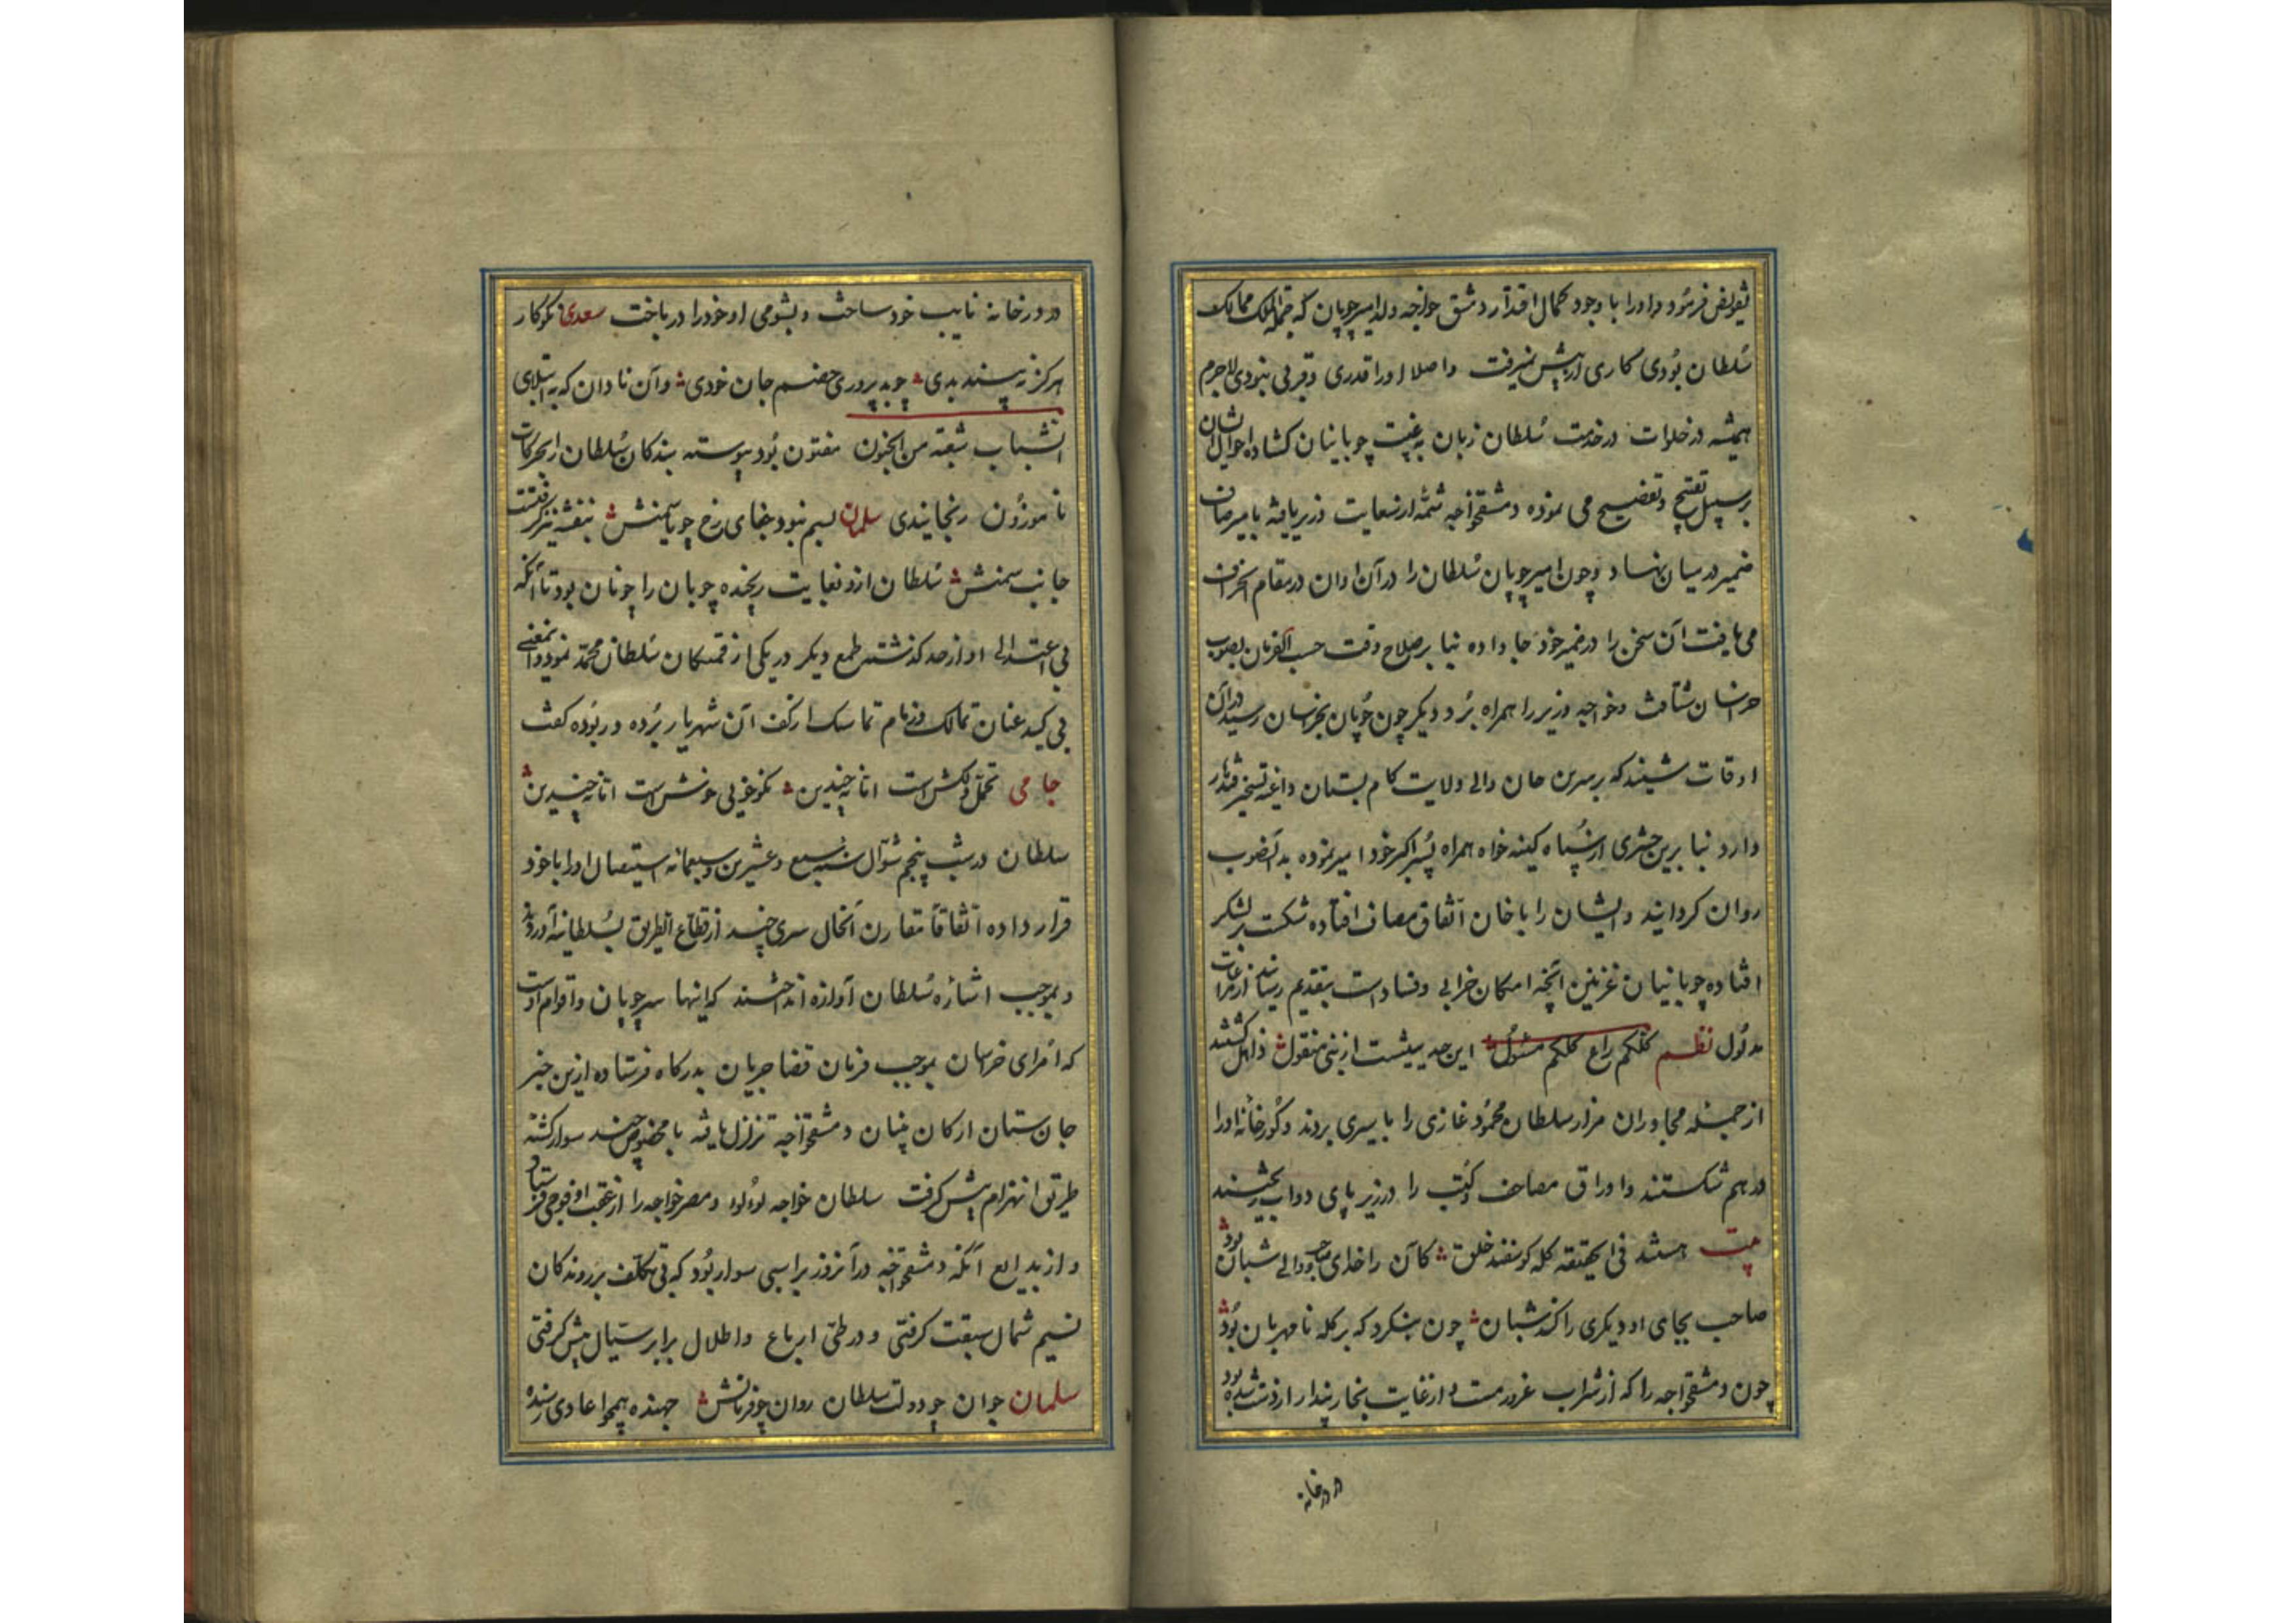 تفویض فرمود و او را با وجود کمال اقتدار دمشق خواجه ولد امیر چوپان که جملة الملک ممالک
سلطان بودی کاری از پیش نمیرفت و اصلا او را قدری و قربی نبودی لاجرم
همیشه در خلوات در خدمت سلطان زبان به غیبت چوپانیان کشاده احوال ایشان
بر سبیل تقبیح و تفضیح می نموده دمشقخواجه شمهٔ از سعایت وزیر یافته با میر صاف
ضمیر در میان نهاد و چون امیر چوپان سلطان را در آن اوان در مقام انحراف
می یافت آن سخن را در ضمیر خود جا داده بنا بر صلاح وقت حسب الفرمان بصوب
خراسان شتافت و خواجه وزیر را همراه برد و دیکر چون چوپان بخراسان رسید در آن
اوقات شنید که برمسرین خان والی ولایت کام بستان داغیه تسخیر قندهار
دارد بنا برین حشری از سپاه کینه خواه همراه پسر اکبر خود امیر نموده بد آنصوب
روان کردانید و ایشان را با خان اتفاق مصاف افتاده شکست بر لشکر
افتاده چوپانیان غزنین آنچه امکان خرابی و فساد است بتقدیم رسانیدند از مراعات
مدلول نظم کلکم راع کلکم مسئول این حدیثیست از نبی منقول ذاهل کشتند
از جمله مجاوران مزار سلطان محمود غازی را باسیری بردند و کورخانهٔ او را
در هم شکستند و اوراق مصاحف و کتب را در زیر پای دواب ریختند
بیت هستند فی الحقیقه کله کوسفند خلق کآن را خدای صاحب و والی شبان بود
صاحب بجای او دیکری را کند شبان چون بنکرد که بر کله نامهربان بود
چون دمشقخواجه را که از شراب غرور مست و از غایت بخار پندار از دست شده بود
در ورخانه
در ورخانه نایب خود ساخت و بشومی او خود را در باخت سعدی نکوکار
هرکز نه پسندد بدی چو بد پروری خصم جان خودی و آن نادان که به ابتلای
الشباب شعبة من الجنون مفتون بود پیوسته بندکان سلطان از حرکات
ناموزون رنجانیدی سلمان نسیم نبود جفای رخ چو یاسمنش بنفشه نیز کرفتست
جانب سمنش سلطان از و نغایت رنجنده چوپان را چونان بود تا آنکه
بی اعتدالی او از حد کذشته طمع دیکر در یکی از قمکان سلطان محمد نمود و المعنی
بی کید عنان تمالک و زمام تماسک از کف آن شهریار برده و ربوده کفت
جامی تحمل دلکش است اما نه چندین نکوخویی خوش است اما نه چندین
سلطان در شب پنجم شوال سنه سبع و عشرین و سبعمائه استیصال او را با خود
قرار داده اتفاقا مقارن آنحال سری چند از قطاع الطریق بسلطانیه آوردند
و بموجب اشاره سلطان آوازه انداختند که اینها سر چوپان و اقوام اوست
که امرای خراسان بموجب فرمان قضا جریان بدرکاه فرستاده ازین خبر
جان ستان ارکان بنیان دمشقخواجه تزلزل یافته با مخصوصی چند سوار کشته
طریق انهزام پیش کرفت سلطان خواجه لولو و مصر خواجه را از عقب او فوجی فرستاد
و از بدایع آنکه دمشقخواجه در آنروز بر اسبی سوار بود که بی تکلف بر روندکان
نسیم شمال سبقت کرفتی و در طی ارباع و اطلال برابر سیال پیش کرفتی
سلمان جوان چو دولت سلطان روان چو فرمانش جهنده همچو اعادی رسنده